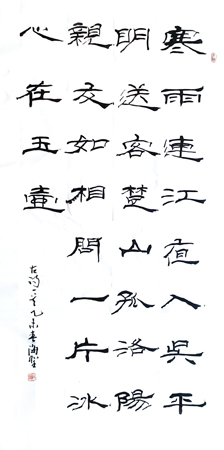 寒雨連江夜入吳平
明送客楚山孤洛陽
親友如相問一片冰
心在玉壺
古詩一首乙未春